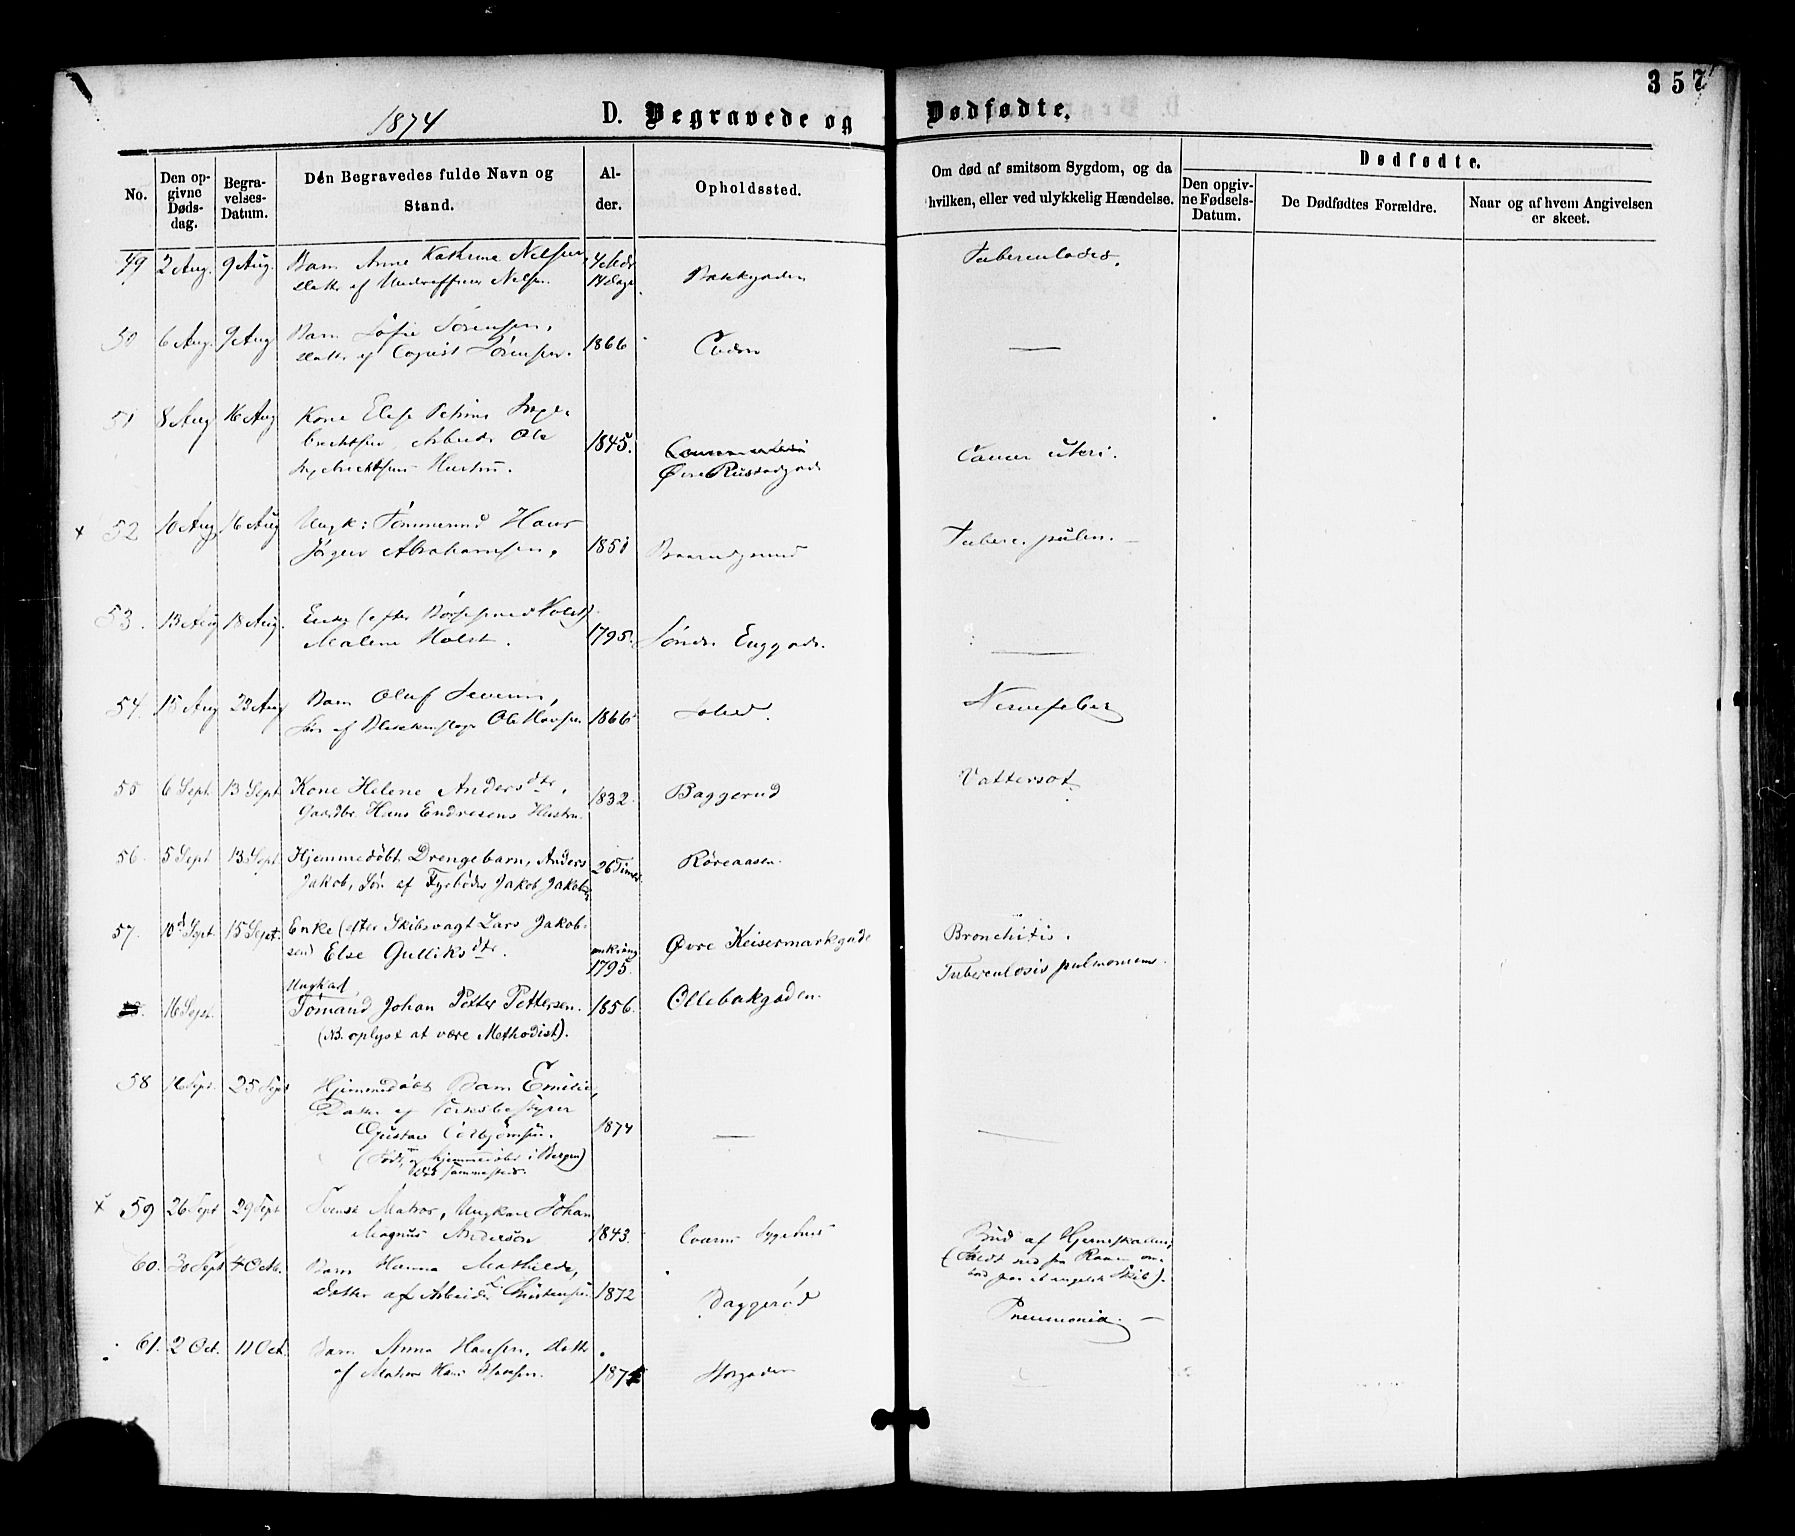 357
1874 D. Begravede og Dødfødte.
No.
Den opgivne Dødsdag.
Begravelses-Datum.
Den Begravedes fulde Navn og Stand.
Alder.
Opholdssted.
Om død af smitsom Sygdom, og da hvilken, eller ved ulykkelig Hændelse.
Dødfødte.
Den opgivne Fødsels-Datum.
De Dødfødtes Forældre.
Naar og af hvem Angivelsen er skeet.
49 2 Aug. 9 Aug. Barn Anne Kathrine Nilsen,
Datter af Nilsen. 14 Dage Bakkegaden
50 6 Aug. 9 Aug Barn Sofie Sørensen,
Datter af Sørensen. 1866 —
51 8 Aug 16 Aug Kone Else Petrine Inge-
brechtsen, Arbeider Ole
Ingebrechtsens Hustru. 1845. Øvre Cancer uteri.
x 52 10 Aug. 16 Aug Ungk: Tømmermd Hans
Jørgen Abrahamsen. 1851 Tuberc. pulm. —
53. 13 Aug 18 Aug. Enke (efter Holst)
Malene Holst. 1795. Søndre Enggade. —
54. 15 Aug 23 Aug Barn Oluf Severin,
Søn af Ole 1866 Nervefeber
55 6 Sept. 13 Sept. Kone Helene Andersdtr,
Gaardbr. Hans Endresens Hustru. 1832. Baggerud Vattersot.
56. 5 Sept 13 Sept. Hjemmedøbt Drengebarn, Anders
Jakob, Søn af Fyrbøder Jakob Jakobsen 26 Timer. Røreaasen.
57. 10d Sept. 15 Sept. Enke (efter Skibsvagt Lars Jakob-
sen) Else Gulliksdtr. omkring 1795. Øvre Keisermarkgade Bronchitis.
Tuberculosis pulmonum.
Ungkarl,
16 Sept. Tømand Johan Petter Pettersen. 1856. Ollebakgaden.
(NB. oplyst at være Methodist).
58 16 Sept. 25 Sept Hjemmedøbt Barn Emilie,
Datter af Værksbestyrer
Gustav 1874 — —
(Født og hjemmedøbt i Bergen)
Død sammesteds.
x 59 26 Sept 29 Sept Svensk Matros, Ungkarl Johan
Magnus Andersson 1843. Sygehus Brud af Hjerneskallen,
(Faldt ned fra Raaen om-
bord paa et engelsk Skib).
60. 30 Sept 4 Octb. Barn Hanna Mathilde,
Datter af Arbeider Christensen 1872 Baggerød Pneumonia. —
61. 2 Oct. 11 Oct. Barn Anna Hansen, Datter
af Matros Hans Hansen. 1874 Storgaden